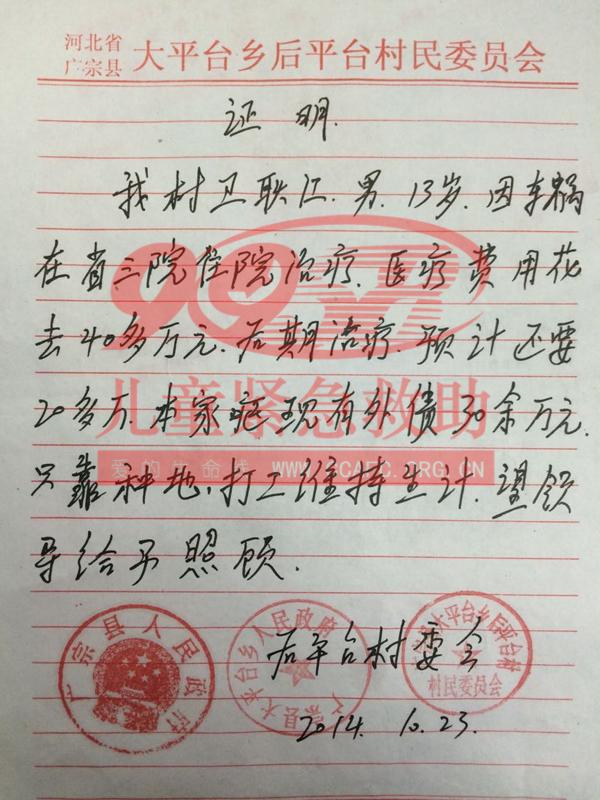 河北省
广宗县
大平台乡后平台村民委员会
证明.
我村卫联江.男.13岁.因车祸
在省三院住院治疗.医疗费用花
去40多万元.后期治疗.预计还要
20多万.本家庭现有外债30余万元.
只靠种地、打工维持生计.望领
导给予照顾.
后平台村委会
2014.10.23.
广宗县人民政府
广宗县大平台乡人民政府
大平台乡后平台村
村民委员会
儿童紧急救助
爱的生命线 WWW.CCAFC.ORG.CN